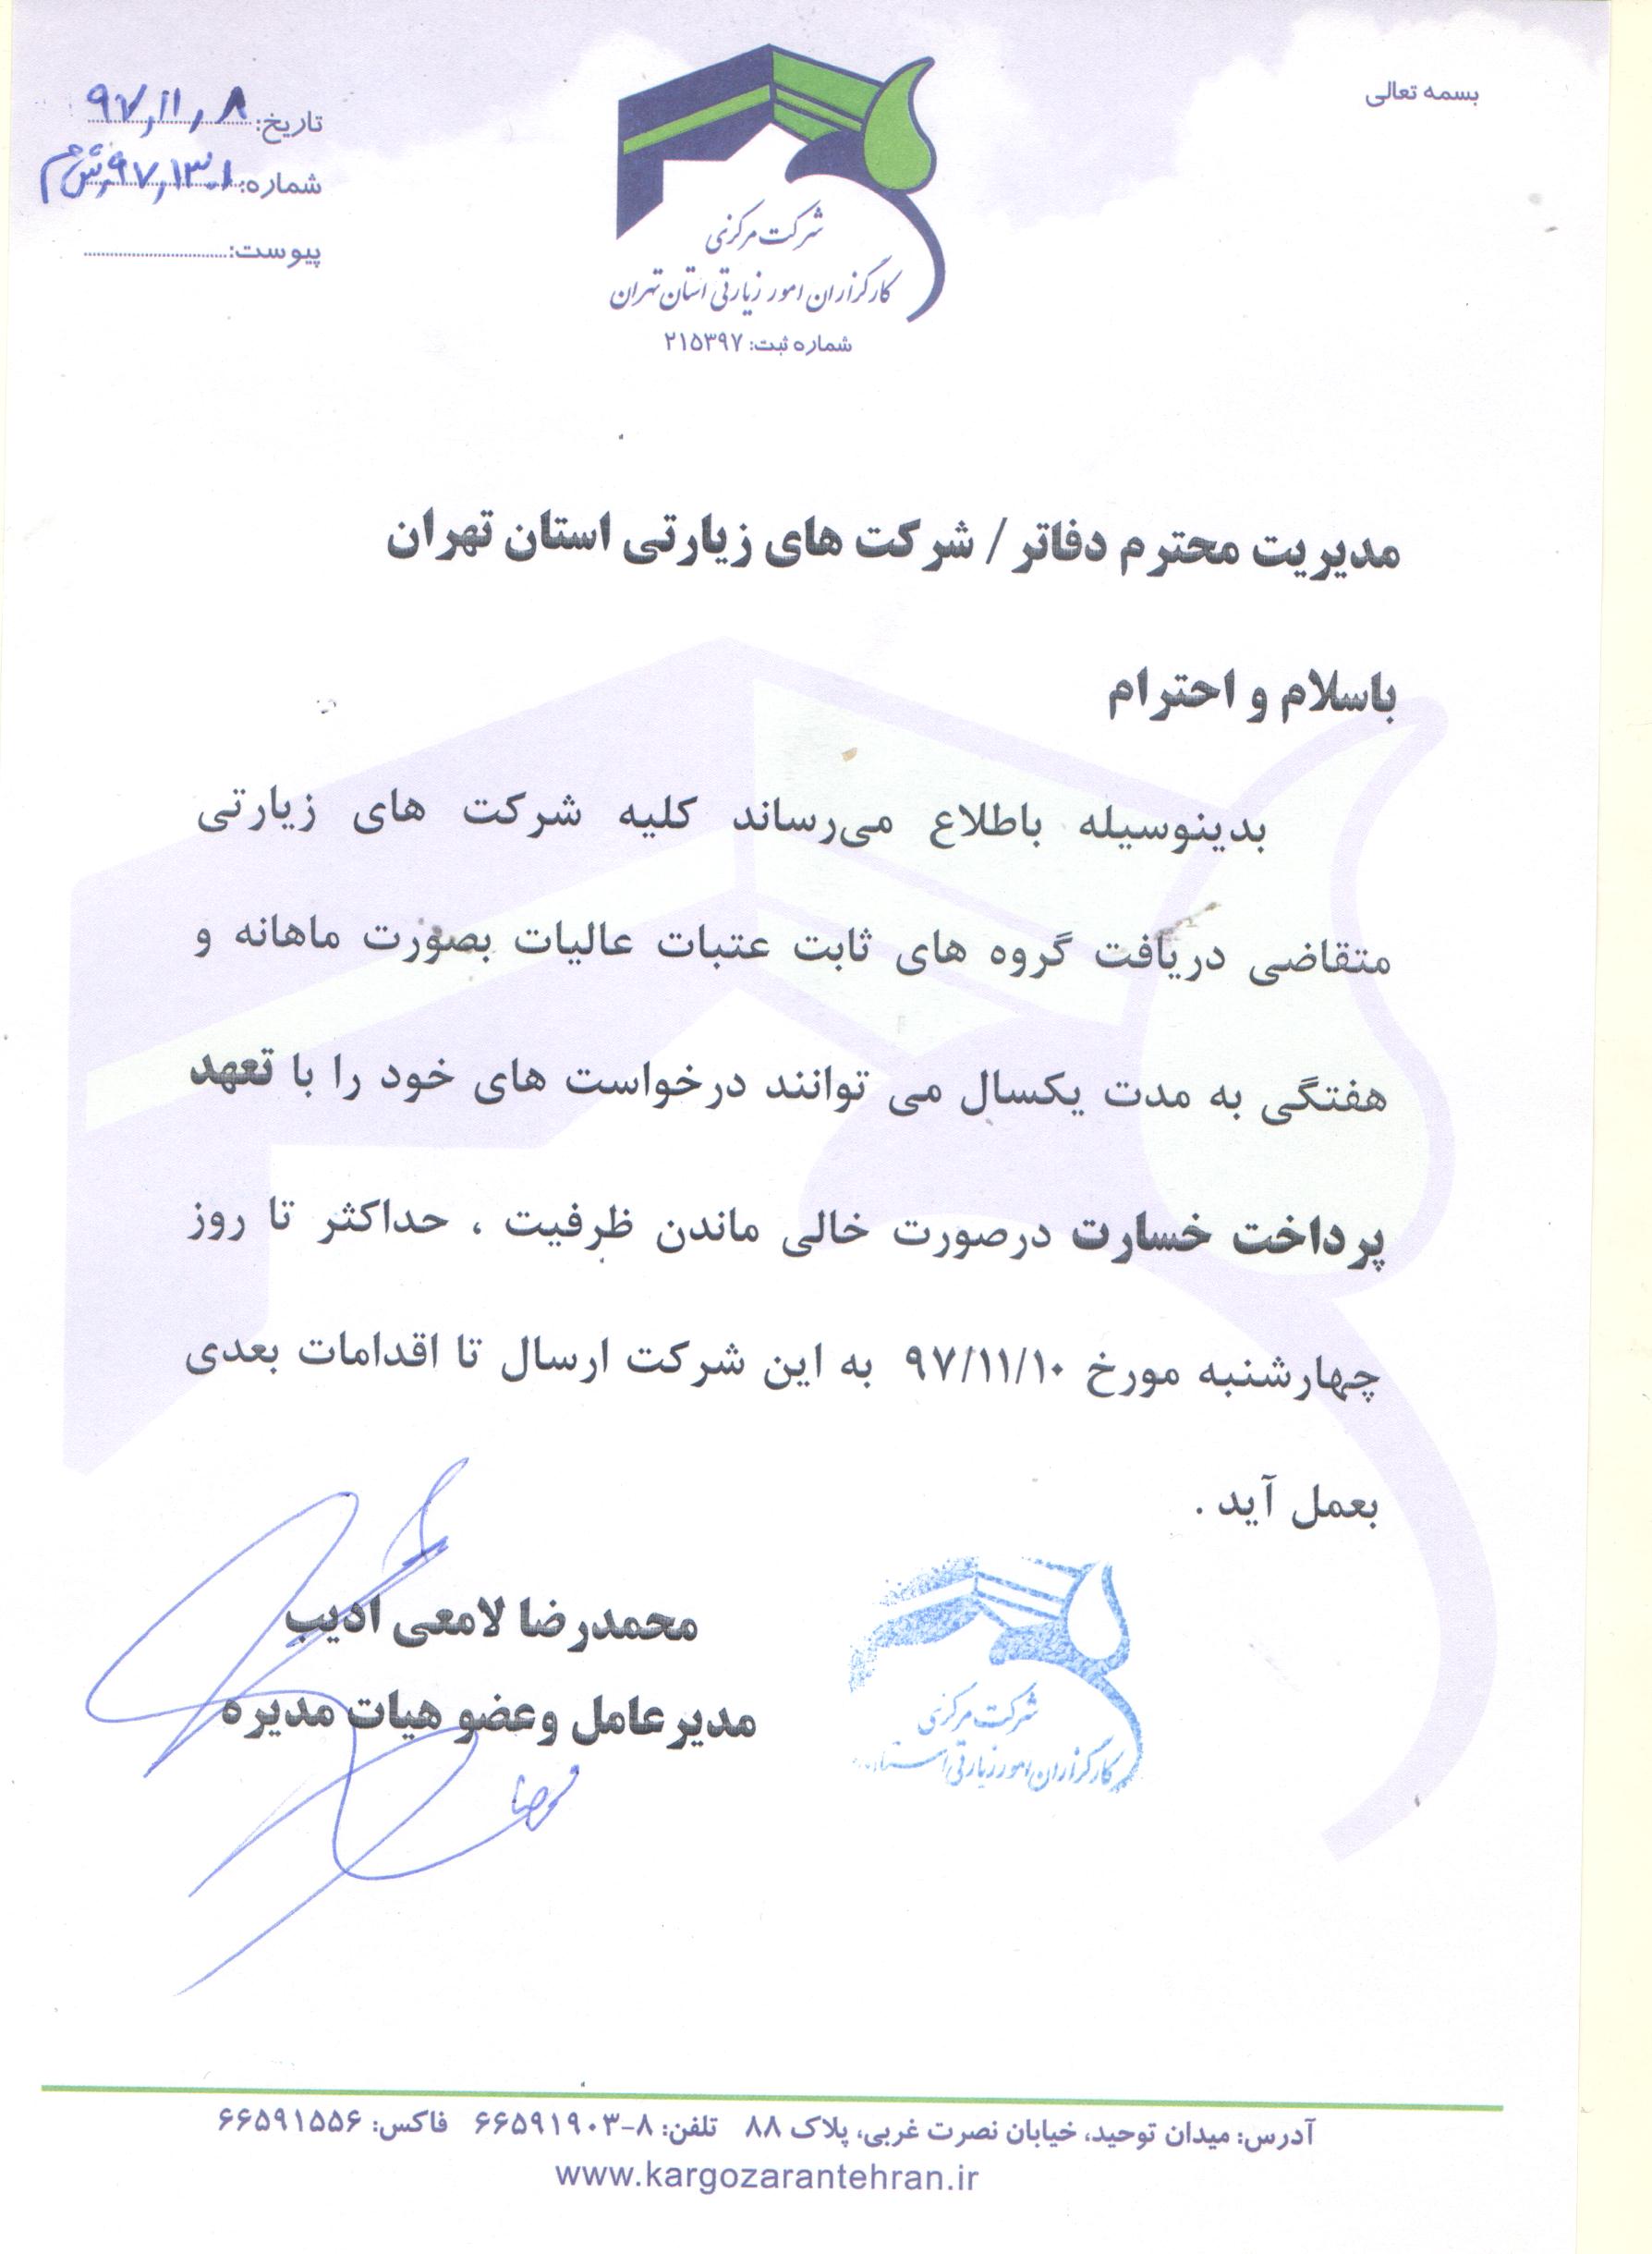 بسمه تعالی
تاریخ: ۹۷،۱۱،۸
شماره: ۹۷،۱۳۰۱،ش م
پیوست:
شرکت مرکزی
کارگزاران امور زیارتی استان تهران
شماره ثبت: ۲۱۵۳۹۷
مدیریت محترم دفاتر / شرکت های زیارتی استان تهران
باسلام و احترام
بدینوسیله باطلاع می‌رساند کلیه شرکت های زیارتی
متقاضی دریافت گروه های ثابت عتبات عالیات بصورت ماهانه و
هفتگی به مدت یکسال می توانند درخواست های خود را با تعهد
پرداخت خسارت درصورت خالی ماندن ظرفیت ، حداکثر تا روز
چهارشنبه مورخ ۹۷/۱۱/۱۰ به این شرکت ارسال تا اقدامات بعدی
بعمل آید .
محمدرضا لامعی ادیب
مدیرعامل وعضو هیات مدیره
شرکت مرکزی
کارگزاران امور زیارتی استان
آدرس: میدان توحید، خیابان نصرت غربی، پلاک ۸۸ تلفن: ۸-۶۶۵۹۱۹۰۳ فاکس: ۶۶۵۹۱۵۵۶
www.kargozarantehran.ir